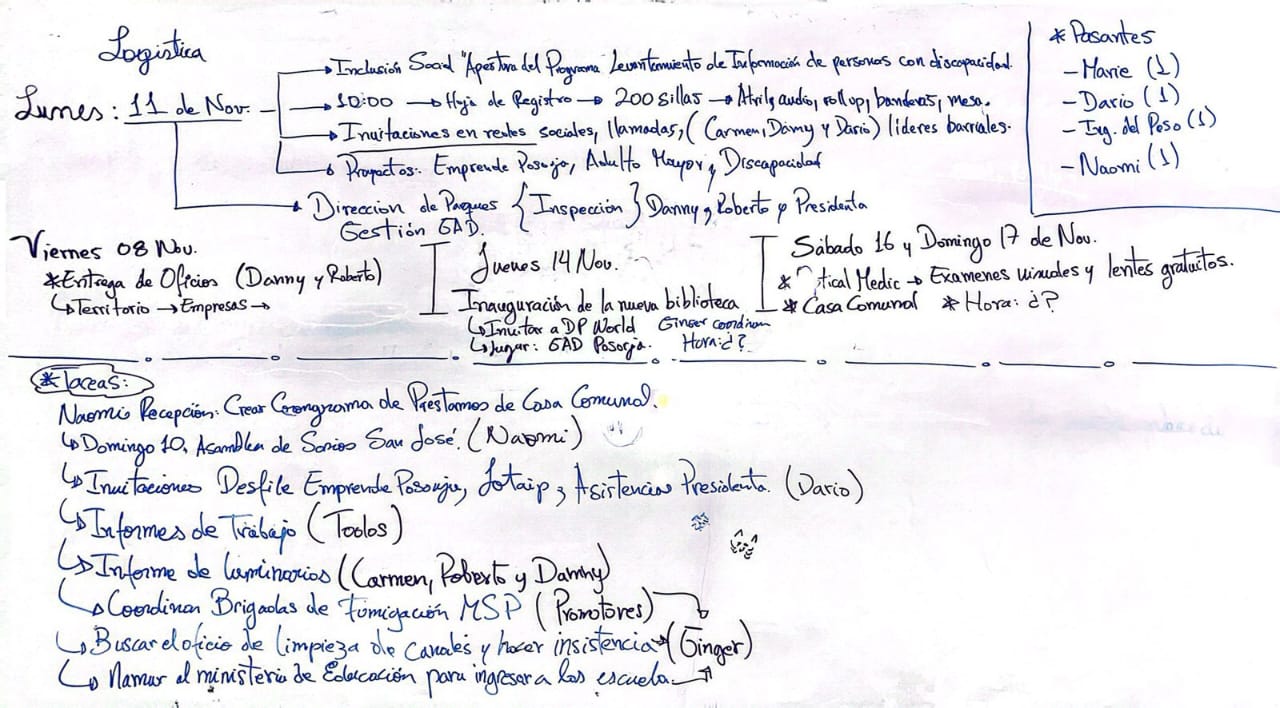 Logistica
Lunes: 11 de Nov.
Inclusión Social "Apertura del Programa" Levantamiento de Información de personas con discapacidad.
10:00 → Hoja de Registro → 200 sillas → Atril, audio, roll up, banderas, mesa.
Invitaciones en redes sociales, llamadas, (Carmen, Danny y Dario) líderes barriales.
Proyectos: Emprende Posorja, Adulto Mayor y Discapacidad
Direccion de Paques {Inspección} Danny y Roberto y Presidenta
Gestión GAD.
* Pasantes
- Marie (1)
- Dario (1)
- Ing. del Peso (1)
- Naomi (1)
Viernes 08 Nov.
* Entrega de Oficios (Danny y Roberto)
↳ Territorio → Empresas →
Jueves 14 Nov.
Inauguración de la nueva biblioteca
↳ Invitar a DP World Ginger coordinar
↳ Lugar: GAD Posorja. Hora: ¿?
Sábado 16 y Domingo 17 de Nov.
* tical Medic → Examenes visuales y lentes gratuitos.
* Casa Comunal * Hora: ¿?
* Tareas:
Naomi Recepción: Crear Crongrama de Prestamos de Casa Comunal.
↳ Domingo 10, Asamblea de Socios San José. (Naomi)
↳ Invitaciones Desfile Emprende Posorja, Lotaip y Asistencias Presidenta. (Dario)
↳ Informes de Trabajo (Todos)
↳ Informe de luminarias (Carmen, Roberto y Danny)
↳ Coordinar Brigadas de Fumigación MSP (Promotores)
↳ Buscar el oficio de limpieza de canales y hacer insistencia → (Ginger)
↳ Llamar al ministerio de Educación para ingresar a las escuela.